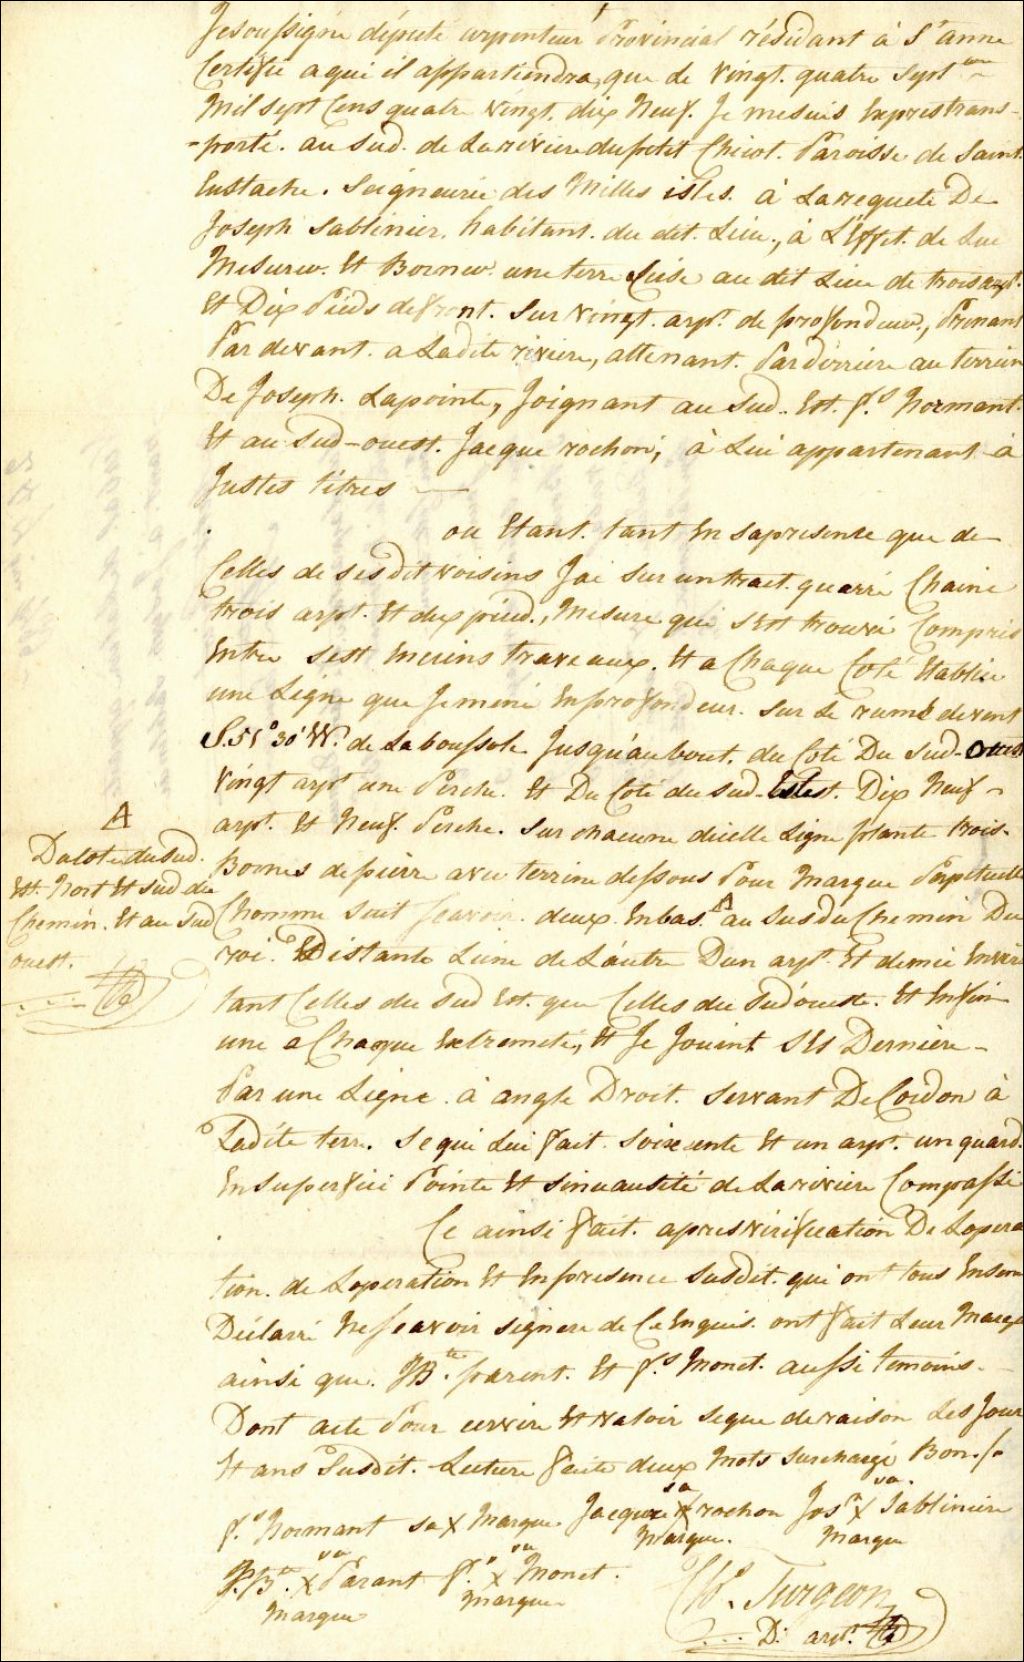 Jesoussigné député arpenteur Provincial résidant à St anne
Certifie aqui il appartiendra, que de vingt. quatre Septbre
Mil sept Cens quatre vingt. dix Neuf. Je mesuis Exprestrans-
-porté. au Sud. de Lariviere dupetit Chicot. Paroisse de Saint
Eustache. Seigneurie des Milles isles. à Larequete De
Joseph Sablinier. habitant. du dit. Lieu, à L'Effet. de Lui
Mesurer. Et Borner. une terre Sise au dit Lieu de trois arpt.
Et Dix Pieds defront. Sur vingt. arpt. de profondeur, Prenant
Par devant. a Ladite riviere, attenant. Parderriere au terrein
De Joseph. Lapointe, Joignant au Sud. Est. fs. Normant.
Et au Sud-ouest. Jacque rochon, à Lui appartenant à
Justes titres
ou Etant. tant En sapresence que de
Celles de sesdit voisins Jai Sur untrait. quarré Chainé
trois arpt. Et dix pied, Mesure qui s'est trouvé Compris
Entre sest enciens travaux. Et a Chaque Coté Etablie
une Ligne que Jemené Enprofondeur. Sur Le rumb devent
S.51°30'W. de Laboussole Jusqu'aubout. du Coté Du Sud-Ouest
vingt arpt une Perche. Et Du Coté du Sud-Est. Dix Neuf
arpt. Et Neuf. Perche. Sur chacune dicelle Ligne plante trois.
Bornes depierre avec terrine dessous Pour Marque Perpetuelle
Comme Suit scavoir. deux. Enbas A au SusduChemin Du
roi. Et Distante L'une de L'autre Dun arpt. Et demie
tant Celles du Sud Est. que Celles du Sudouest. Et Enfin
une a Chaque Extremeté, Et Je Jouint SES Derniere
Par une Ligne à angle Droit. Servant De Cordon à
Ladite terre. Se qui Lui fait. Soixcente Et un arpt. unquard.
Ensuperficie Pointe Et Sinuausité de Lariviere Compassé
Ce ainsi fait. apresverification De Lopera
tion. de Loperation Et Enpresence Susdit. qui ont tous Ensem
Déclarré Nescavoir signere de Ce Enquis. ont fait Leur Marque
ainsi que. JBte. parent. Et fs. Monet. aussi temoins.
Dont acte Pour servir Etvaloir seque deraison Les Jour
Et ans Susdit. Lecture faite deux Mots Surchargé Bon.
fs. Normant sa X Marque Jacque sa X rochon Marque. Josh sa X Sablinier Marque
J.Bte. sa X Parant Marque fs. sa X Monet. Marque
Turgeon
D. arpt.
A
Ducoté duSud.
Est. Nort Et Sud du
Chemin. Et au Sud
ouest.